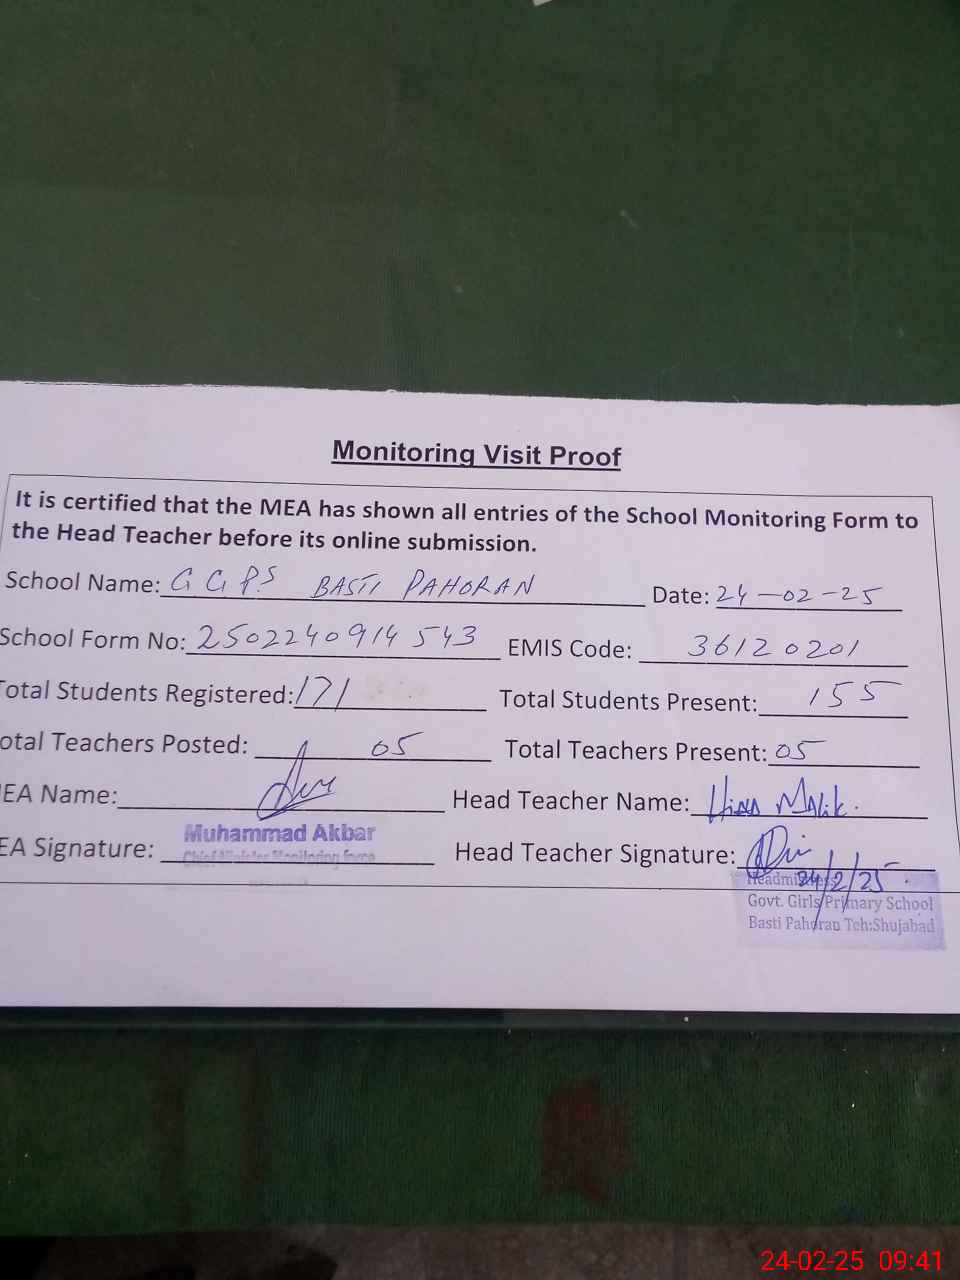 Monitoring Visit Proof
It is certified that the MEA has shown all entries of the School Monitoring Form to
the Head Teacher before its online submission.
School Name: G G P.S BASTI PAHORAN Date: 24-02-25
School Form No: 2502240914543 EMIS Code: 36120201
Total Students Registered: 171 Total Students Present: 155
otal Teachers Posted: 05 Total Teachers Present: 05
EA Name: Head Teacher Name: Hina Malik.
Muhammad Akbar
EA Signature: Chief Minister Monitoring force Head Teacher Signature:
Headmistress 24/2/25
Govt. Girls Primary School
Basti Pahoran Teh:Shujabad
24-02-25 09:41